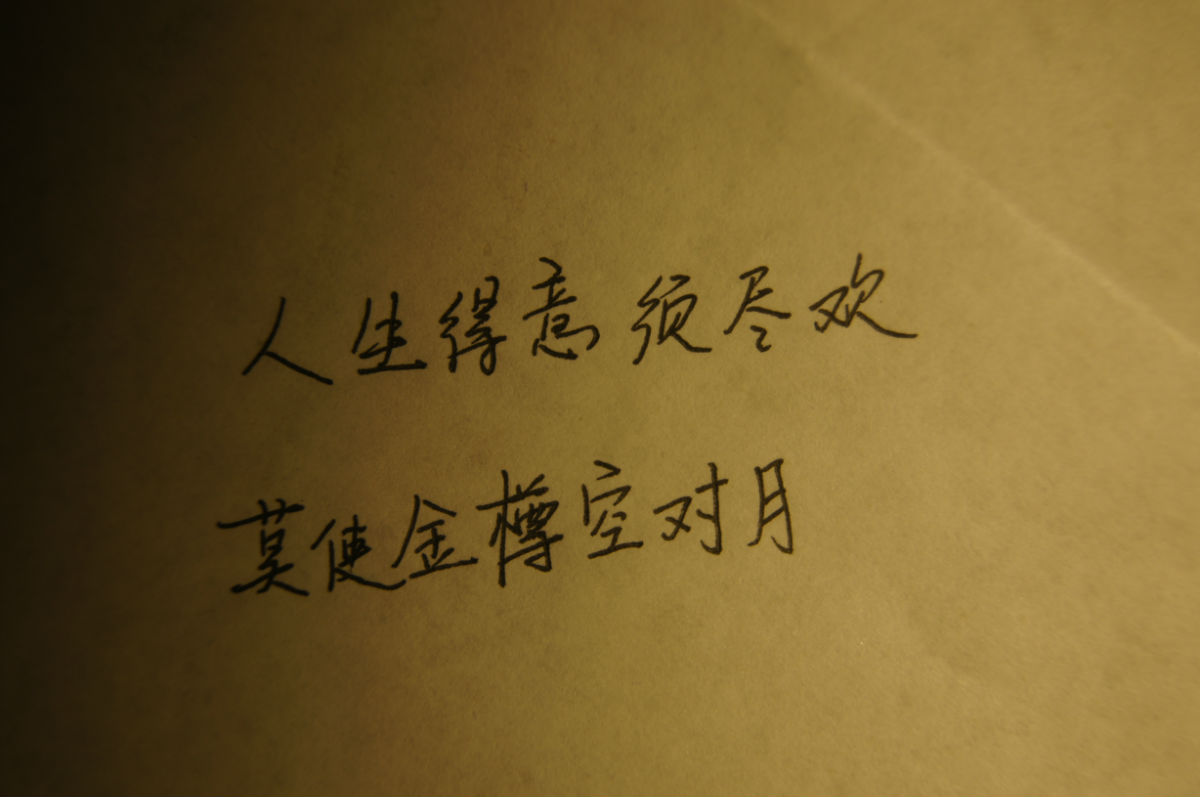 人生得意须尽欢
莫使金樽空对月